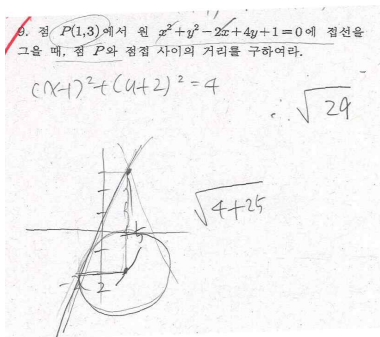 9. 점 P(1,3)에서 원 x²+y²-2x+4y+1=0에 접선을
그을 때, 점 P와 점접 사이의 거리를 구하여라.
(x-1)²+(y+2)²=4
∴ √29
√4+25
5
2